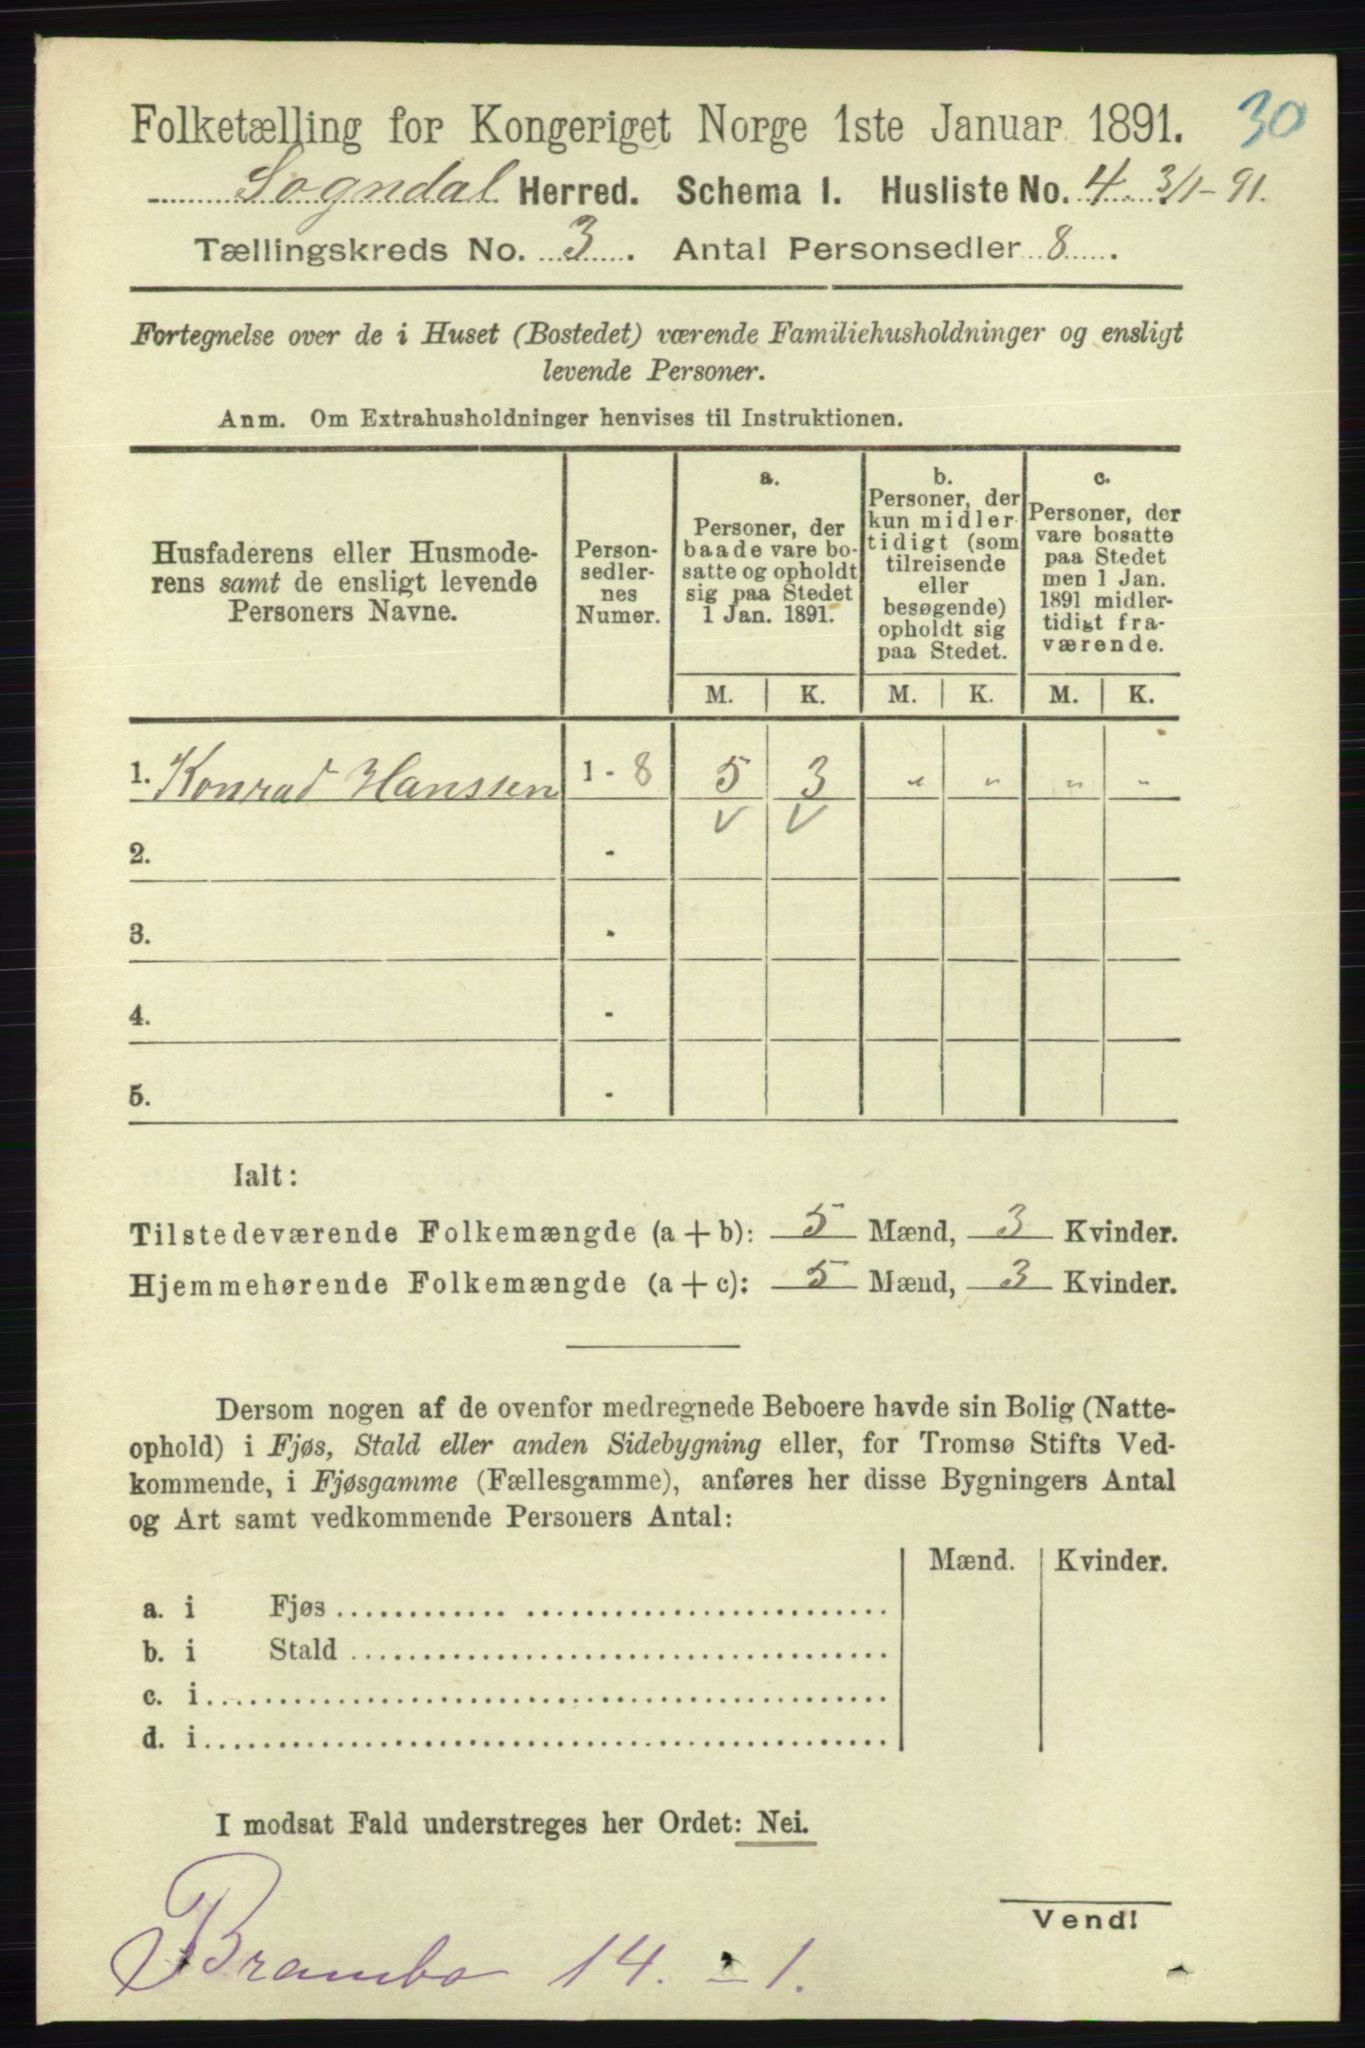 30
Folketælling for Kongeriget Norge 1ste Januar 1891.
Sogndal Herred. Schema 1. Husliste No. 4 3/1-91.
Tællingskreds No. 3. Antal Personsedler 8.
Fortegnelse over de i Huset (Bostedet) værende Familiehusholdninger og ensligt
levende Personer.
Anm. Om Extrahusholdninger henvises til Instruktionen.
Husfaderens eller Husmode-
rens samt de ensligt levende
Personers Navne.
Person-
sedler-
nes
Numer.
a.
Personer, der
baade vare bo-
satte og opholdt
sig paa Stedet
1 Jan. 1891.
b.
Personer, der
kun midler-
tidigt (som
tilreisende
eller
besøgende)
opholdt sig
paa Stedet.
c.
Personer, der
vare bosatte
paa Stedet
men 1 Jan.
1891 midler-
tidigt fra-
værende.
M. K. M. K. M. K.
1. Konrad Hanssen 1 - 8 5 3 " " " "
2. -
3. -
4. -
5. -
Ialt:
Tilstedeværende Folkemængde (a + b): 5 Mænd, 3 Kvinder.
Hjemmehørende Folkemængde (a + c): 5 Mænd, 3 Kvinder.
Dersom nogen af de ovenfor medregnede Beboere havde sin Bolig (Natte-
ophold) i Fjøs, Stald eller anden Sidebygning eller, for Tromsø Stifts Ved-
kommende, i Fjøsgamme (Fællesgamme), anføres her disse Bygningers Antal
og Art samt vedkommende Personers Antal:
Mænd. Kvinder.
a. i Fjøs
b. i Stald
c. i
d. i
I modsat Fald understreges her Ordet: Nei.
Vend!
Brambo 14. - 1.